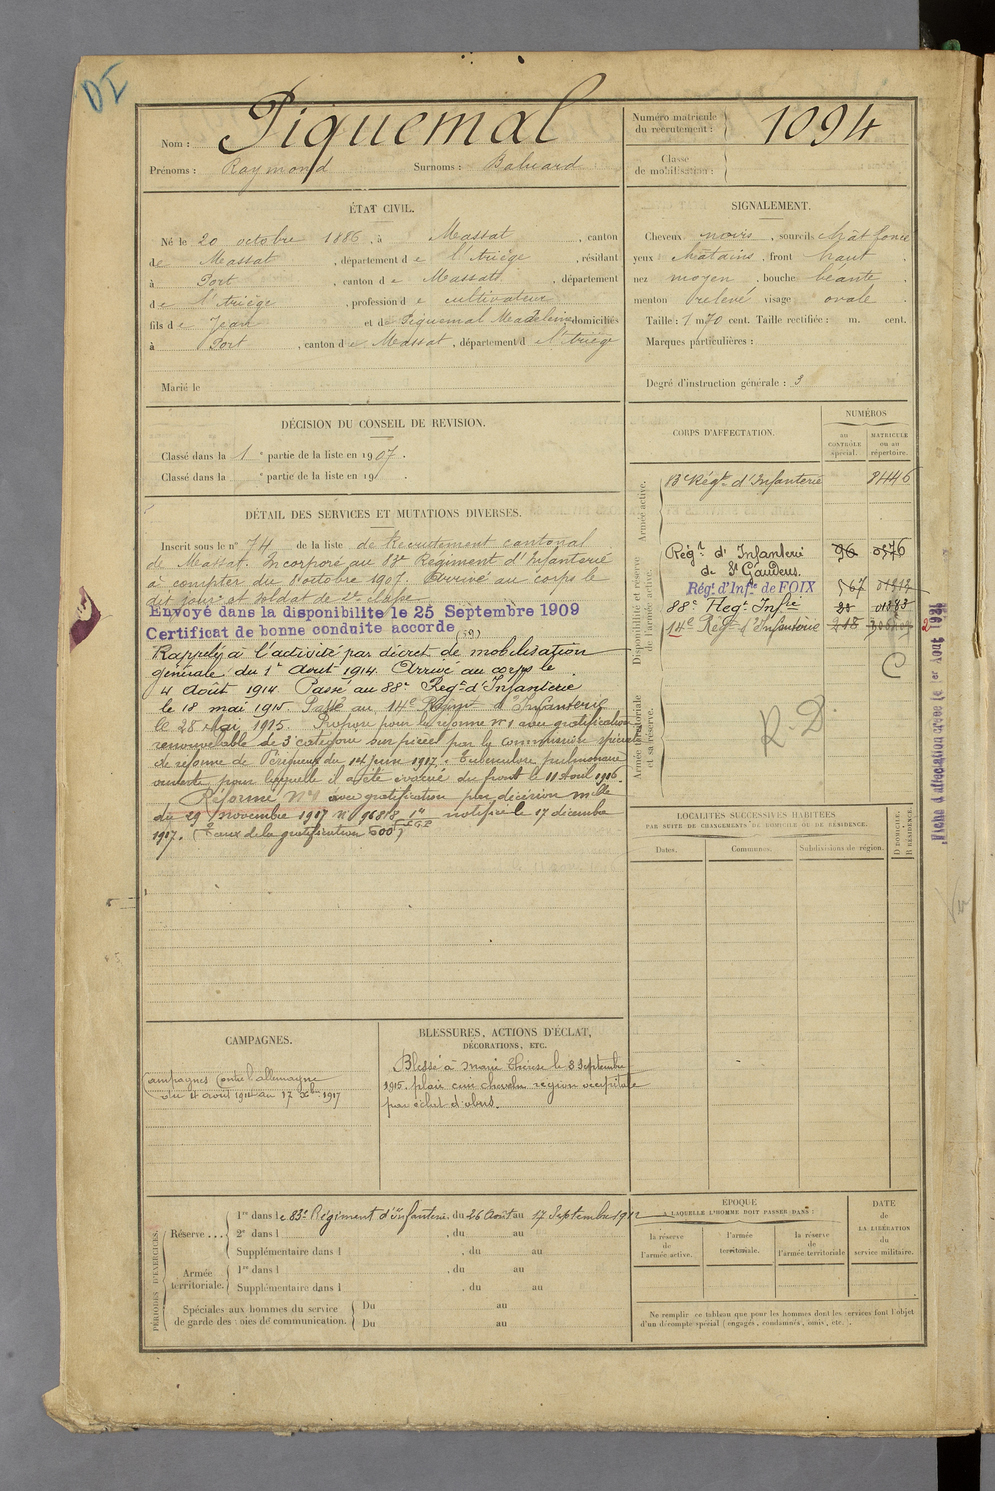 DI
Nom : Piquemal
Prénoms : Raymond Surnoms : Baluard
Numéro matricule du recrutement : 1094
Classe de mobilisation :
ÉTAT CIVIL.
Né le 20 octobre 1886, à Massat, canton
de Massat, département de l'Ariège, résidant
à Port, canton de Massat, département
de l'Ariège, profession de cultivateur
fils de Jean et de Piquemal Madeleine domiciliés
à Port, canton de Massat, département de l'Ariège
Marié le
SIGNALEMENT.
Cheveux noirs, sourcils chât foncé
yeux chatains, front haut
nez moyen, bouche béante
menton relevé visage ovale
Taille : 1 m 70 cent. Taille rectifiée : m. cent.
Marques particulières :
Degré d'instruction générale : 3
DÉCISION DU CONSEIL DE REVISION.
Classé dans la 1 e partie de la liste en 1907.
Classé dans la e partie de la liste en 19
DÉTAIL DES SERVICES ET MUTATIONS DIVERSES.
Inscrit sous le n° 74 de la liste de Recrutement cantonal
de Massat. Incorporé au 83e Régiment d'Infanterie
à compter du 8 octobre 1907. Arrivé au corps le
dit jour et soldat de 2e classe
Envoyé dans la disponibilité le 25 Septembre 1909
Certificat de bonne conduite accordé (59)
Rappelé à l'activité par décret de mobilisation
générale du 1er Août 1914. Arrivé au corps le
4 Août 1914. Passé au 88e Regt d'Infanterie
le 18 mai 1915. Passé au 14e Régimt d'Infanterie
le 28 Mai 1915. Proposé pour la réforme n°1 avec gratification
renouvelable de 3e catégorie sur pièces par la commission spéciale
de réforme de Périgueux du 14 juin 1917. Tuberculose pulmonaire
ouverte pour laquelle il a été évacué du front le 11 Aout 1916.
Réformé N°1 avec gratification par décision mlle
du 29 novembre 1917 n° 96818 notifiée le 17 décembre
1917. (Taux de la gratification 500)
CORPS D'AFFECTATION.
NUMÉROS
au CONTRÔLE spécial.
MATRICULE ou au répertoire.
Armée active.
83e Régt d'Infanterie 8446
Disponibilité et réserve de l'armée active.
Régt d'Infanterie 96 0576
de St Gaudens.
Régt d'Infie de FOIX 567
88e Regt Infie 28
14e Regt d'Infanterie 218
C
Armée territoriale et sa réserve.
R.D.
Fiche d'affectation créée le 1er Août 1921
LOCALITÉS SUCCESSIVES HABITÉES
PAR SUITE DE CHANGEMENTS DE DOMICILE OU DE RÉSIDENCE.
Dates. Communes. Subdivisions de région. D DOMICILE. R RÉSIDENCE.
CAMPAGNES.
Campagnes contre l'allemagne
du 4 aout 1914 au 17 Xbre 1917
BLESSURES, ACTIONS D'ÉCLAT,
DÉCORATIONS, ETC.
Blessé à Marie Thérèse le 3 Septembre
1915. plaie cuir chevelu region occipitale
par éclat d'obus.
PÉRIODES D'EXERCICES.
Réserve ... 1re dans le 83e Régiment d'Infanterie, du 26 Août au 17 Septembre 1912
2e dans l , du au
Supplémentaire dans l , du au
Armée territoriale. 1re dans l , du au
Supplémentaire dans l , du au
Spéciales aux hommes du service
de garde des voies de communication. Du au
Du au
EPOQUE
A LAQUELLE L'HOMME DOIT PASSER DANS :
la réserve de l'armée active.
l'armée territoriale.
la réserve de l'armée territoriale
DATE de LA LIBÉRATION du service militaire.
Ne remplir ce tableau que pour les hommes dont les services font l'objet
d'un décompte spécial (engagés, condamnés, omis, etc.).